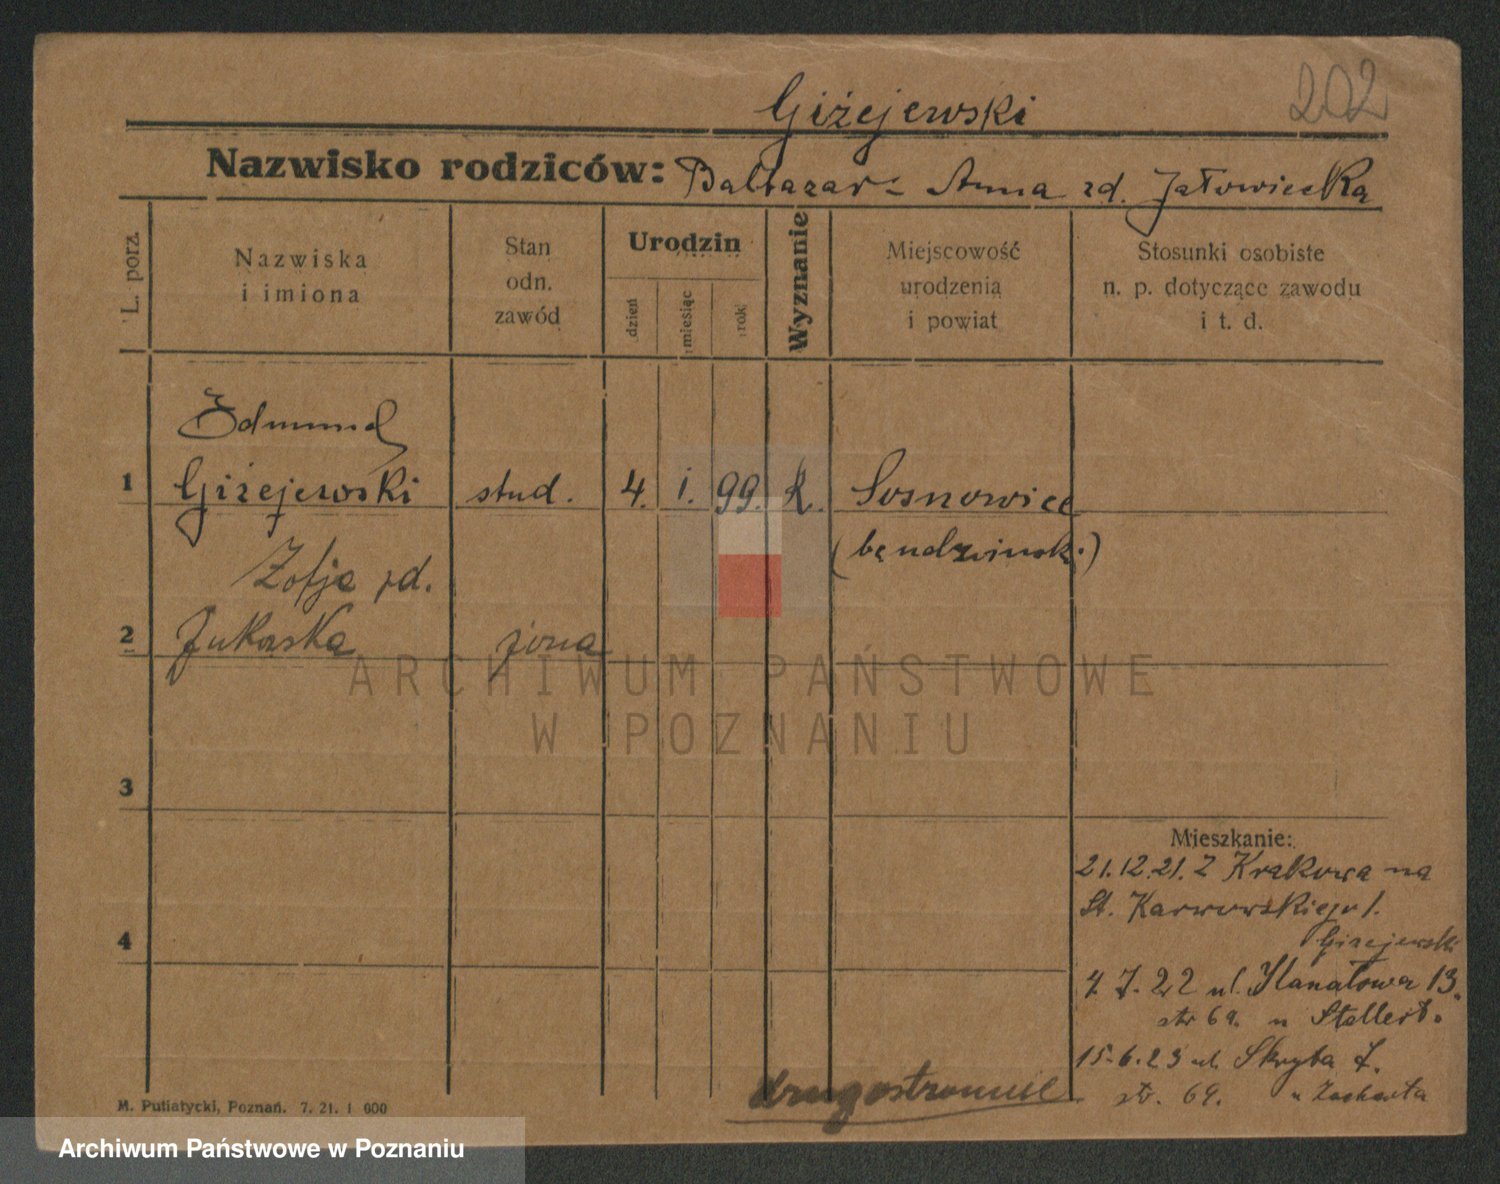 202
Giżejewski
Nazwisko rodziców: Baltazar - Anna zd. Jałowiecka
L. porz.
Nazwiska
i imiona
Stan
odn.
zawód
Urodzin
dzień
miesiąc
rok
Wyznanie
Miejscowość
urodzenia
i powiat
Stosunki osobiste
n. p. dotyczące zawodu
i t. d.
Edmund
1 Giżejewski stud. 4. I. 99. R. Sosnowice
Zofja zd.
2 żona
3
4
Mieszkanie:
21.12.21. Z Krakowa na
St. Karwowskiego 1.
Giżejewski
4. 7. 22 ul. 13.
str 69. u
15.6.23 ul. Skryta 7.
str. 69. u
drugostronnie
M. Putiatycki, Poznań. 7. 21. 1 600
ARCHIWUM PAŃSTWOWE
W POZNANIU
Archiwum Państwowe w Poznaniu